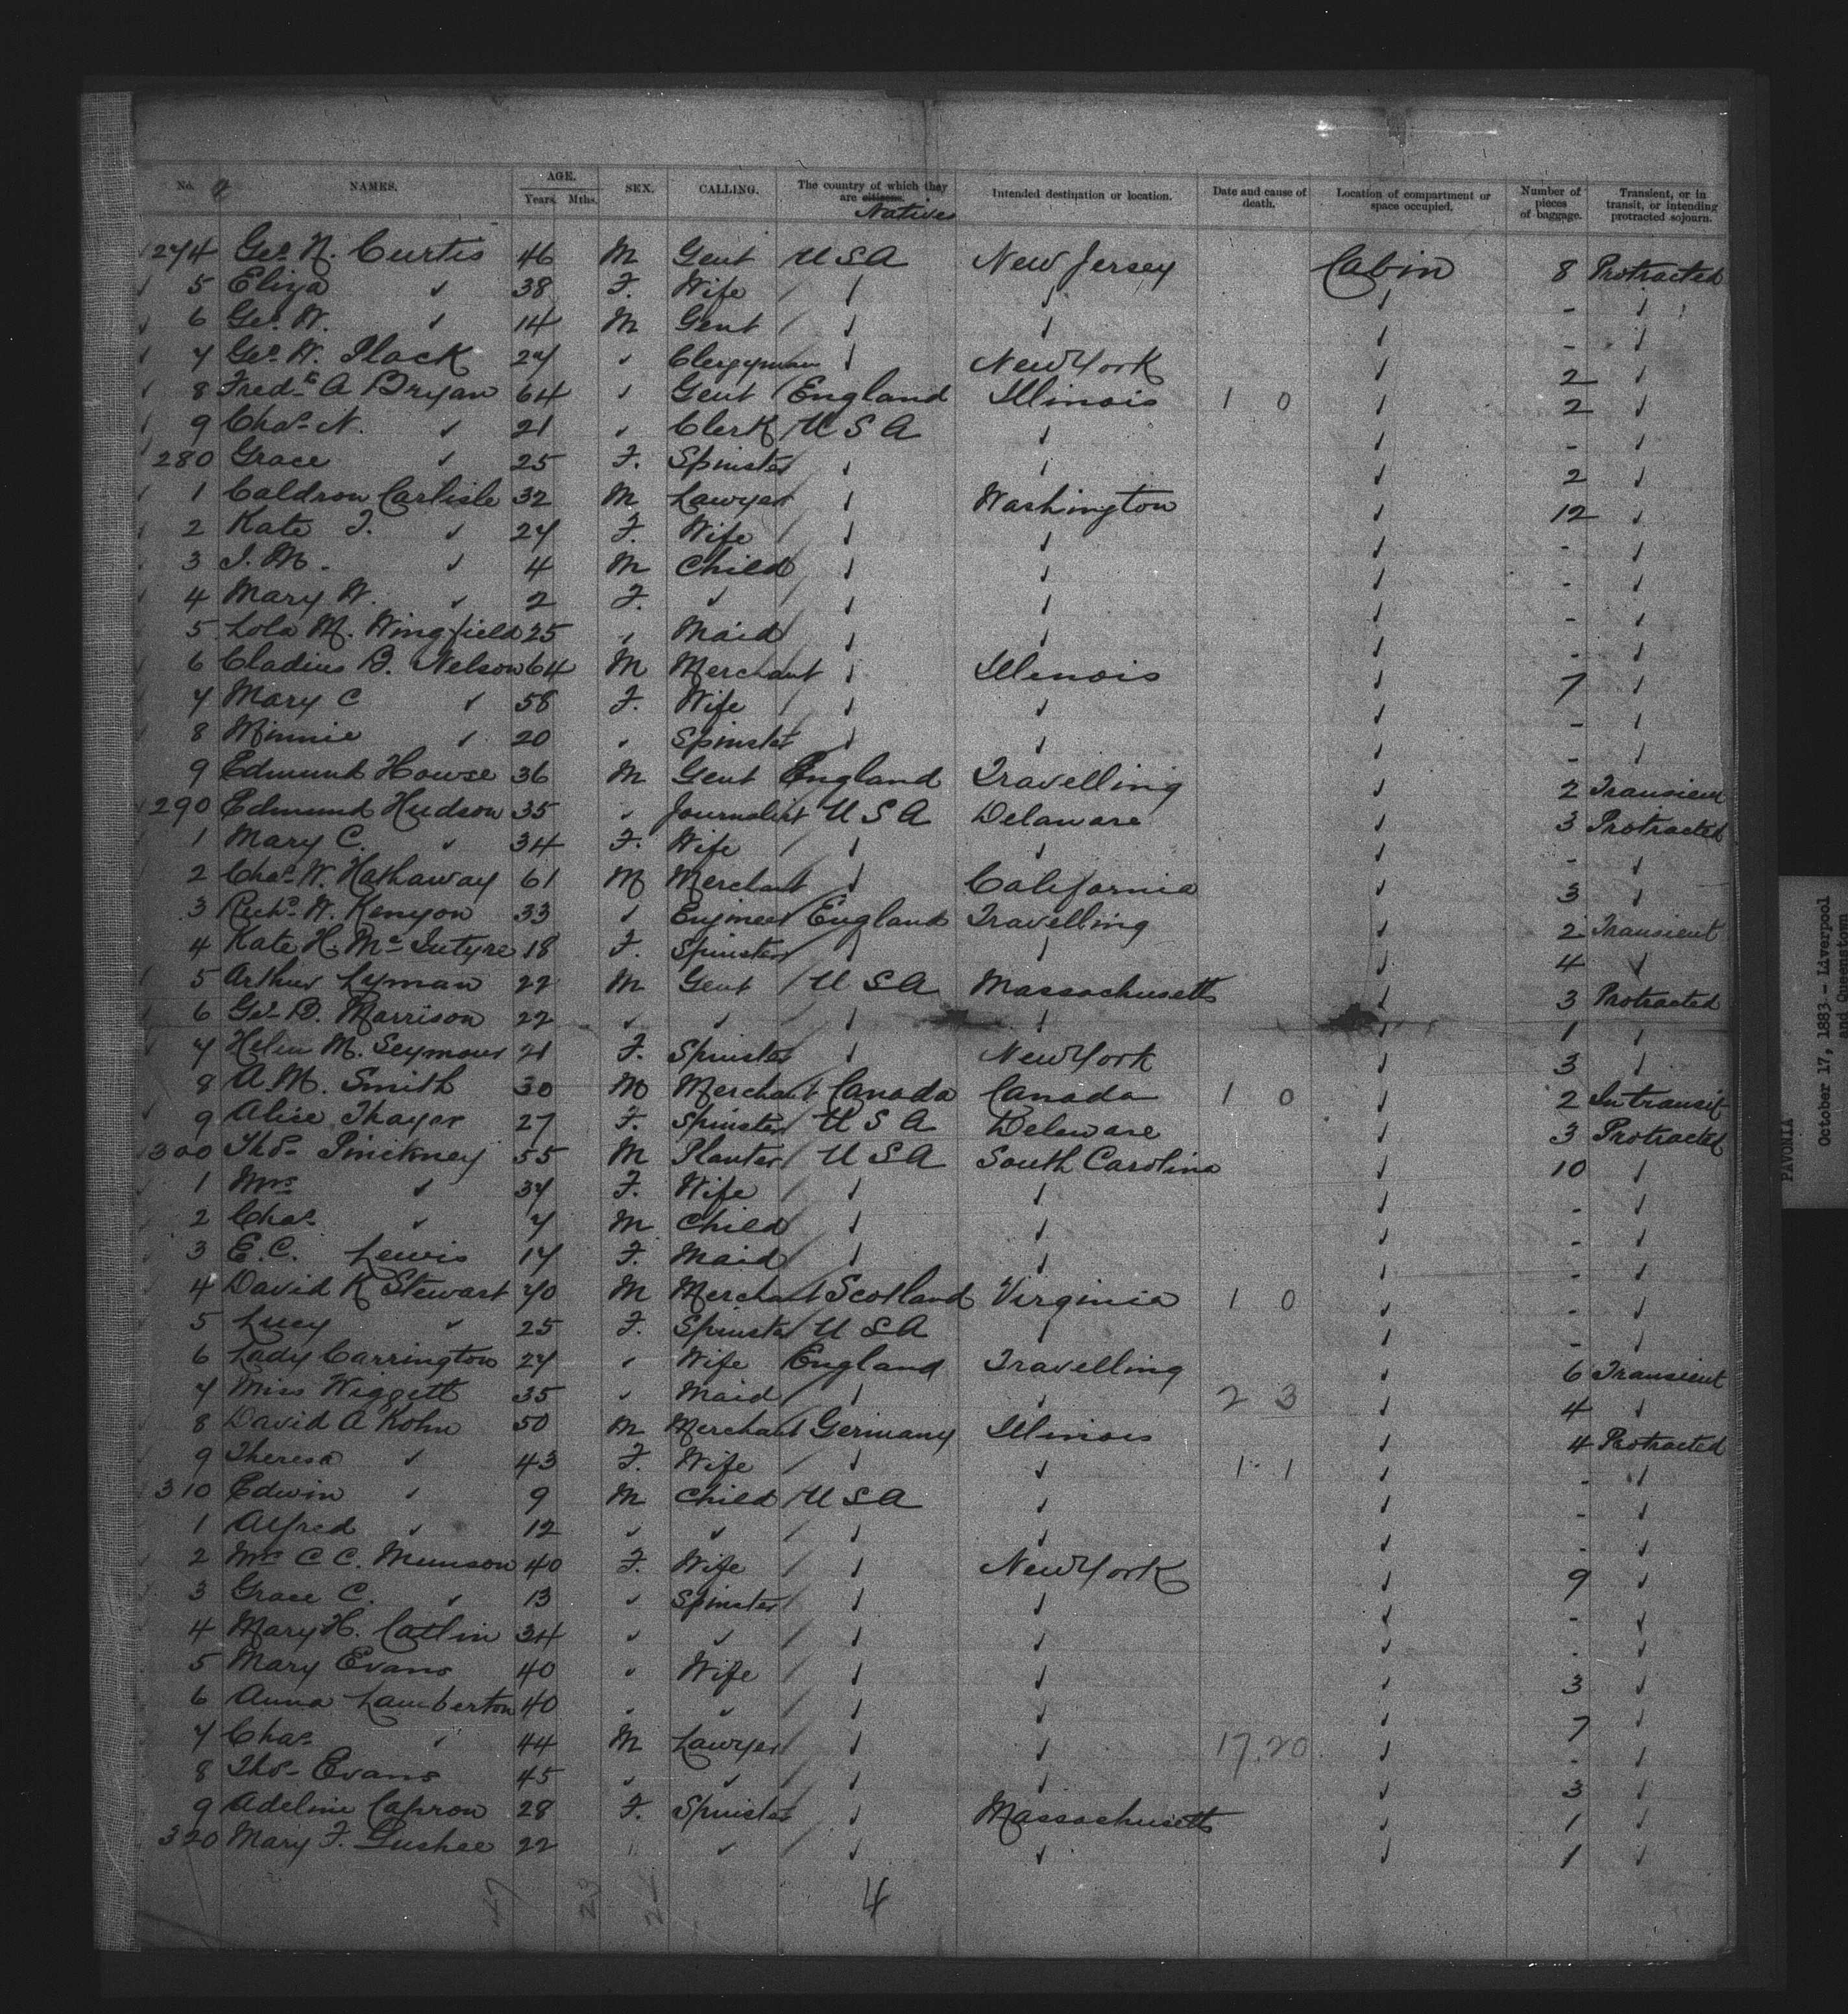 No. NAMES. AGE. Years. Mths. SEX. CALLING. The country of which they are citizens. Natives Intended destination or location. Date and cause of death. Location of compartment or space occupied. Number of pieces of baggage. Transient, or in transit, or intending protracted sojourn.
274 Geo. N. Curtis 46 M Gent USA New Jersey Cabin 8 Protracted
5 Eliza ✓ 38 F. Wife ✓ ✓ ✓ - ✓
6 Geo. W. ✓ 14 M Gent ✓ ✓ ✓ - ✓
7 Geo. W. Plack 27 ✓ Clergyman ✓ New York ✓ 2 ✓
8 Fredk A Bryan 64 ✓ Gent England Illinois 1 0 ✓ 2 ✓
9 Chas. N. ✓ 21 ✓ Clerk USA ✓ ✓ - ✓
280 Grace ✓ 25 F. Spinster ✓ ✓ ✓ 2 ✓
1 Caldron Carlisle 32 M Lawyer ✓ Washington ✓ 12 ✓
2 Kate T. ✓ 27 F. Wife ✓ ✓ ✓ - ✓
3 J. M. ✓ 4 M Child ✓ ✓ ✓ - ✓
4 Mary W. ✓ 2 F. ✓ ✓ ✓ ✓ - ✓
5 Lola M. Wingfield 25 ✓ Maid ✓ ✓ ✓ - ✓
6 Cladius B. Nelson 64 M Merchant ✓ Illinois ✓ 7 ✓
7 Mary C ✓ 58 F. Wife ✓ ✓ ✓ - ✓
8 Minnie ✓ 20 ✓ Spinster ✓ ✓ ✓ - ✓
9 Edmund Howse 36 M Gent England Travelling ✓ 2 Transient
290 Edmund Hudson 35 ✓ Journalist USA Delaware ✓ 3 Protracted
1 Mary C. ✓ 34 F. Wife ✓ ✓ ✓ - ✓
2 Chas. W. Hathaway 61 M Merchant ✓ California ✓ 3 ✓
3 Richd. W. Kenyon 33 ✓ Engineer England Travelling ✓ 2 Transient
4 Kate H. McIntyre 18 F. Spinster ✓ ✓ ✓ 4 ✓
5 Arthur Lyman 22 M Gent USA Massachusetts ✓ 3 Protracted
6 Geo. B. Morrison 22 ✓ ✓ ✓ ✓ ✓ 1 ✓
7 Helen M. Seymour 21 F. Spinster ✓ New York ✓ 3 ✓
8 A. M. Smith 30 M Merchant Canada Canada 1 0 ✓ 2 In transit
9 Alice Thayer 27 F. Spinster USA Delaware ✓ 3 Protracted
300 Thos. Pinckney 55 M Planter USA South Carolina ✓ 10 ✓
1 Mrs ✓ 37 F. Wife ✓ ✓ ✓ - ✓
2 Chas. ✓ 7 M Child ✓ ✓ ✓ - ✓
3 E. C. Lewis 17 F. Maid ✓ ✓ ✓ - ✓
4 David K Stewart 70 M Merchant Scotland Virginia 1 0 ✓ - ✓
5 Lucy ✓ 25 F. Spinster USA ✓ ✓ - ✓
6 Lady Carrington 27 ✓ Wife England Travelling ✓ 6 Transient
7 Miss Wiggett 35 ✓ Maid ✓ ✓ 2 3 ✓ 4 ✓
8 David A Kohn 50 M Merchant Germany Illinois ✓ 4 Protracted
9 Theresa ✓ 43 F. Wife ✓ ✓ 1 1 ✓ - ✓
310 Edwin ✓ 9 M Child USA ✓ ✓ - ✓
1 Alfred ✓ 12 ✓ ✓ ✓ ✓ ✓ - ✓
2 Mrs C C. Munson 40 F. Wife ✓ New York ✓ 9 ✓
3 Grace C. ✓ 13 ✓ Spinster ✓ ✓ ✓ - ✓
4 Mary H. Catlin 34 ✓ ✓ ✓ ✓ ✓ - ✓
5 Mary Evans 40 ✓ Wife ✓ ✓ ✓ 3 ✓
6 Anna Lamberton 40 ✓ ✓ ✓ ✓ ✓ 7 ✓
7 Chas. ✓ 44 M Lawyer ✓ ✓ 17.20 ✓ - ✓
8 Thos. Evans 45 ✓ ✓ ✓ ✓ ✓ 3 ✓
9 Adeline Capron 28 F. Spinster ✓ Massachusetts ✓ 1 ✓
320 Mary F. Gushee 22 " ✓ ✓ ✓ ✓ 1 ✓
47 23 24 4
PAVONIA
October 17, 1883 - Liverpool
and Queenstown